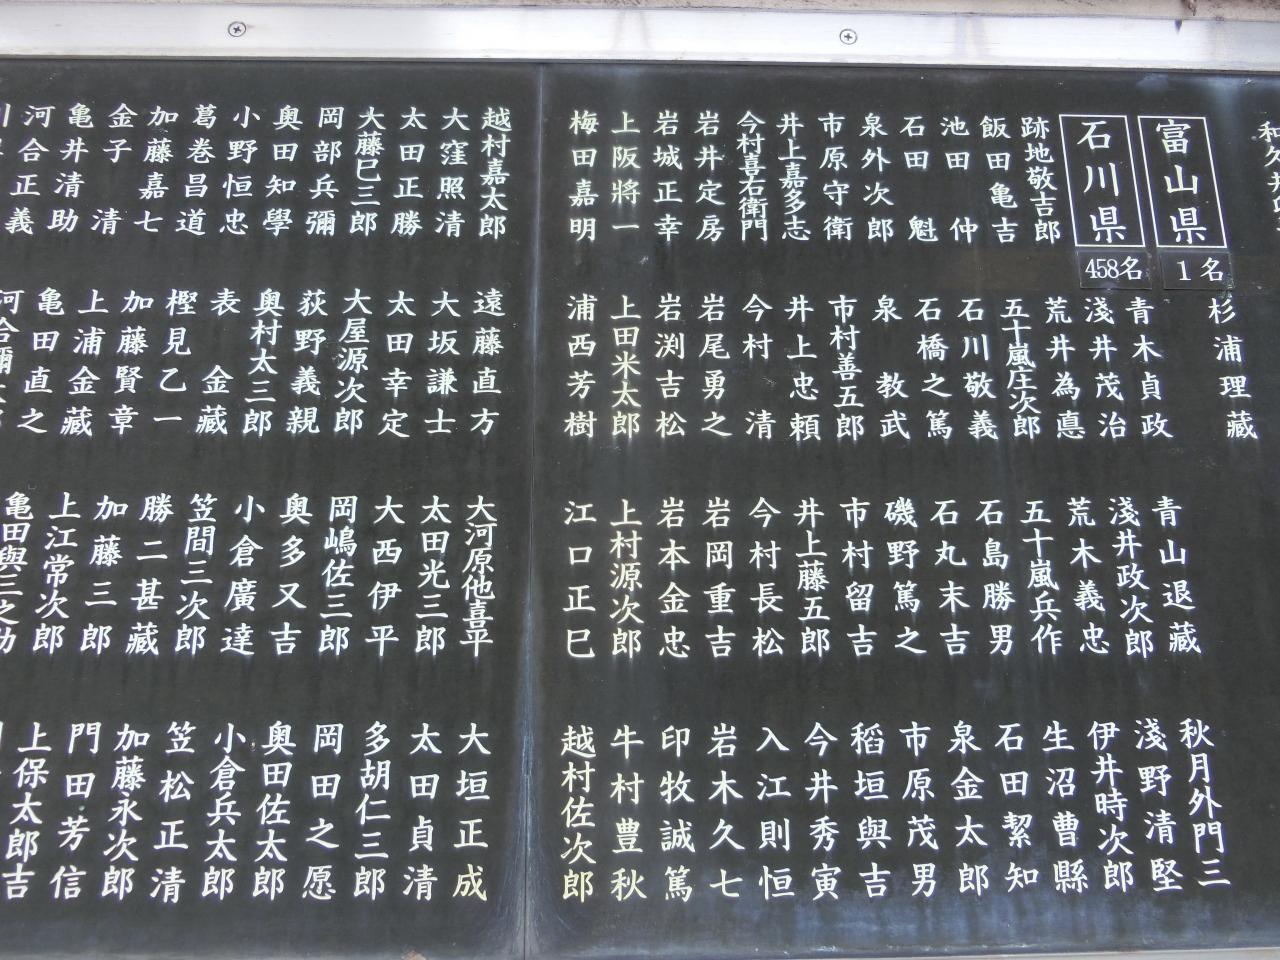 富山県
1名
杉浦理藏
石川県
458名
青木貞政
青山退藏
秋月外門三
跡地敬吉郎
淺井茂治
淺井政次郎
淺野清堅
飯田亀吉
荒井為悳
荒木義忠
伊井時次郎
池田仲
五十嵐庄次郎
五十嵐兵作
生沼曹縣
石田魁
石川敬義
石島勝男
石田絜知
泉外次郎
石橋之篤
石丸末吉
泉金太郎
市原守衛
泉教武
磯野篤之
市原茂男
井上嘉多志
市村善五郎
市村留吉
稻垣與吉
今村喜右衛門
井上忠頼
井上藤五郎
今井秀寅
岩井定房
今村清
今村長松
入江則恒
岩城正幸
岩尾勇之
岩岡重吉
岩木久七
上阪將一
岩渕吉松
岩本金忠
印牧誠篤
梅田嘉明
上田米太郎
上村源次郎
牛村豊秋
浦西芳樹
江口正巳
越村佐次郎
越村嘉太郎
遠藤直方
大河原他喜平
大垣正成
大窪照清
大坂謙士
太田光三郎
太田貞清
太田正勝
太田幸定
大西伊平
多胡仁三郎
大藤巳三郎
大屋源次郎
岡嶋佐三郎
岡田之愿
岡部兵彌
荻野義親
奥多又吉
奥田佐太郎
奥田知學
奥村太三郎
小倉廣達
小倉兵太郎
小野恒忠
表金藏
笠間三次郎
笠松正清
葛巻昌道
樫見乙一
勝二甚藏
加藤永次郎
加藤嘉七
加藤賢章
加藤三郎
門田芳信
金子清
上浦金藏
上江常次郎
上保太郎吉
亀井清助
亀田直之
亀田與三之助
河合正義
河合彌